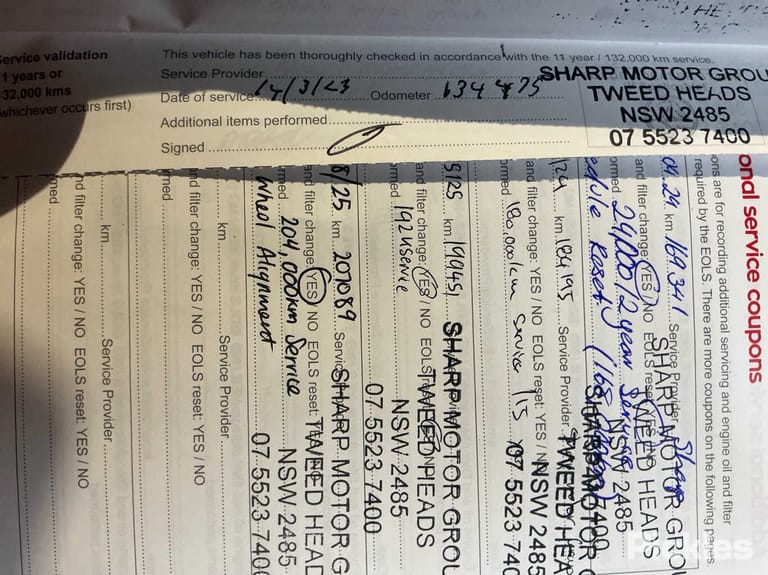 Service validation
1 years or
32,000 kms
whichever occurs first)
This vehicle has been thoroughly checked in accordance with the 11 year / 132,000 km service.
Service Provider
Date of service 14/3/23 Odometer 134475
Additional items performed
Signed
SHARP MOTOR GROU
TWEED HEADS
NSW 2485
07 5523 7400
onal service coupons
ons are for recording additional servicing and engine oil and filter
required by the EOLS. There are more coupons on the following pages.
04.24 km 169.341 Service Provider Sharp
and filter change: YES / NO EOLS reset: YES / NO
ormed 24,000/2 year Service
SHARP MOTOR GROU
TWEED HEADS
NSW 2485
7400
edule Reset (168
124 km 184195 Service Provider
and filter change: YES / NO EOLS reset: YES / N
ormed 180,000km Service
SHARP MOTOR G
TWEED HEA
NSW 2485
07 5523 740
5/25 km 190451
and filter change: YES / NO EOLS
ormed 192K service
SHARP MOTOR GROU
TWEED HEADS
NSW 2485
07 5523 7400
8/25 km 207089 Servic
and filter change: YES / NO EOLS reset:
rmed 204,000km Service
Wheel Alignment
SHARP MOTOR G
TWEED HEAD
NSW 2485
07 5523 7400
km Service Provider
nd filter change: YES / NO EOLS reset: YES / NO
rmed
km Service Provider
nd filter change: YES / NO EOLS reset: YES / NO
med